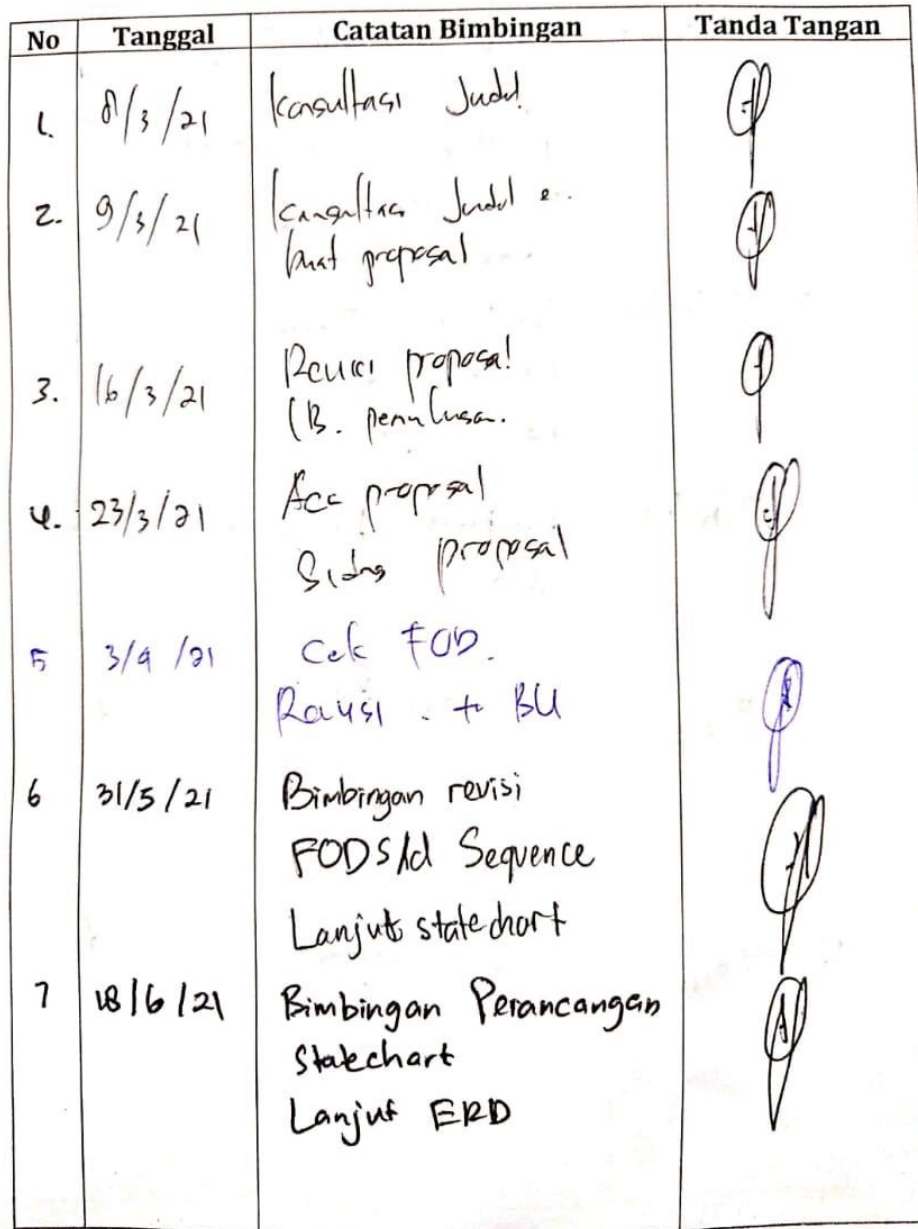 No Tanggal Catatan Bimbingan Tanda Tangan
1. 8/3/21 Konsultasi Judul
2. 9/3/21 Konsultasi Judul &
buat proposal
3. 16/3/21 Revisi proposal
(B. penulisan.
4. 23/3/21 Acc proposal
Sidang proposal
5 3/4/21 Cek FOD.
Revisi . + BU
6 31/5/21 Bimbingan revisi
FOD s/d Sequence
Lanjut statechart
7 18/6/21 Bimbingan Perancangan
Statechart
Lanjut ERD